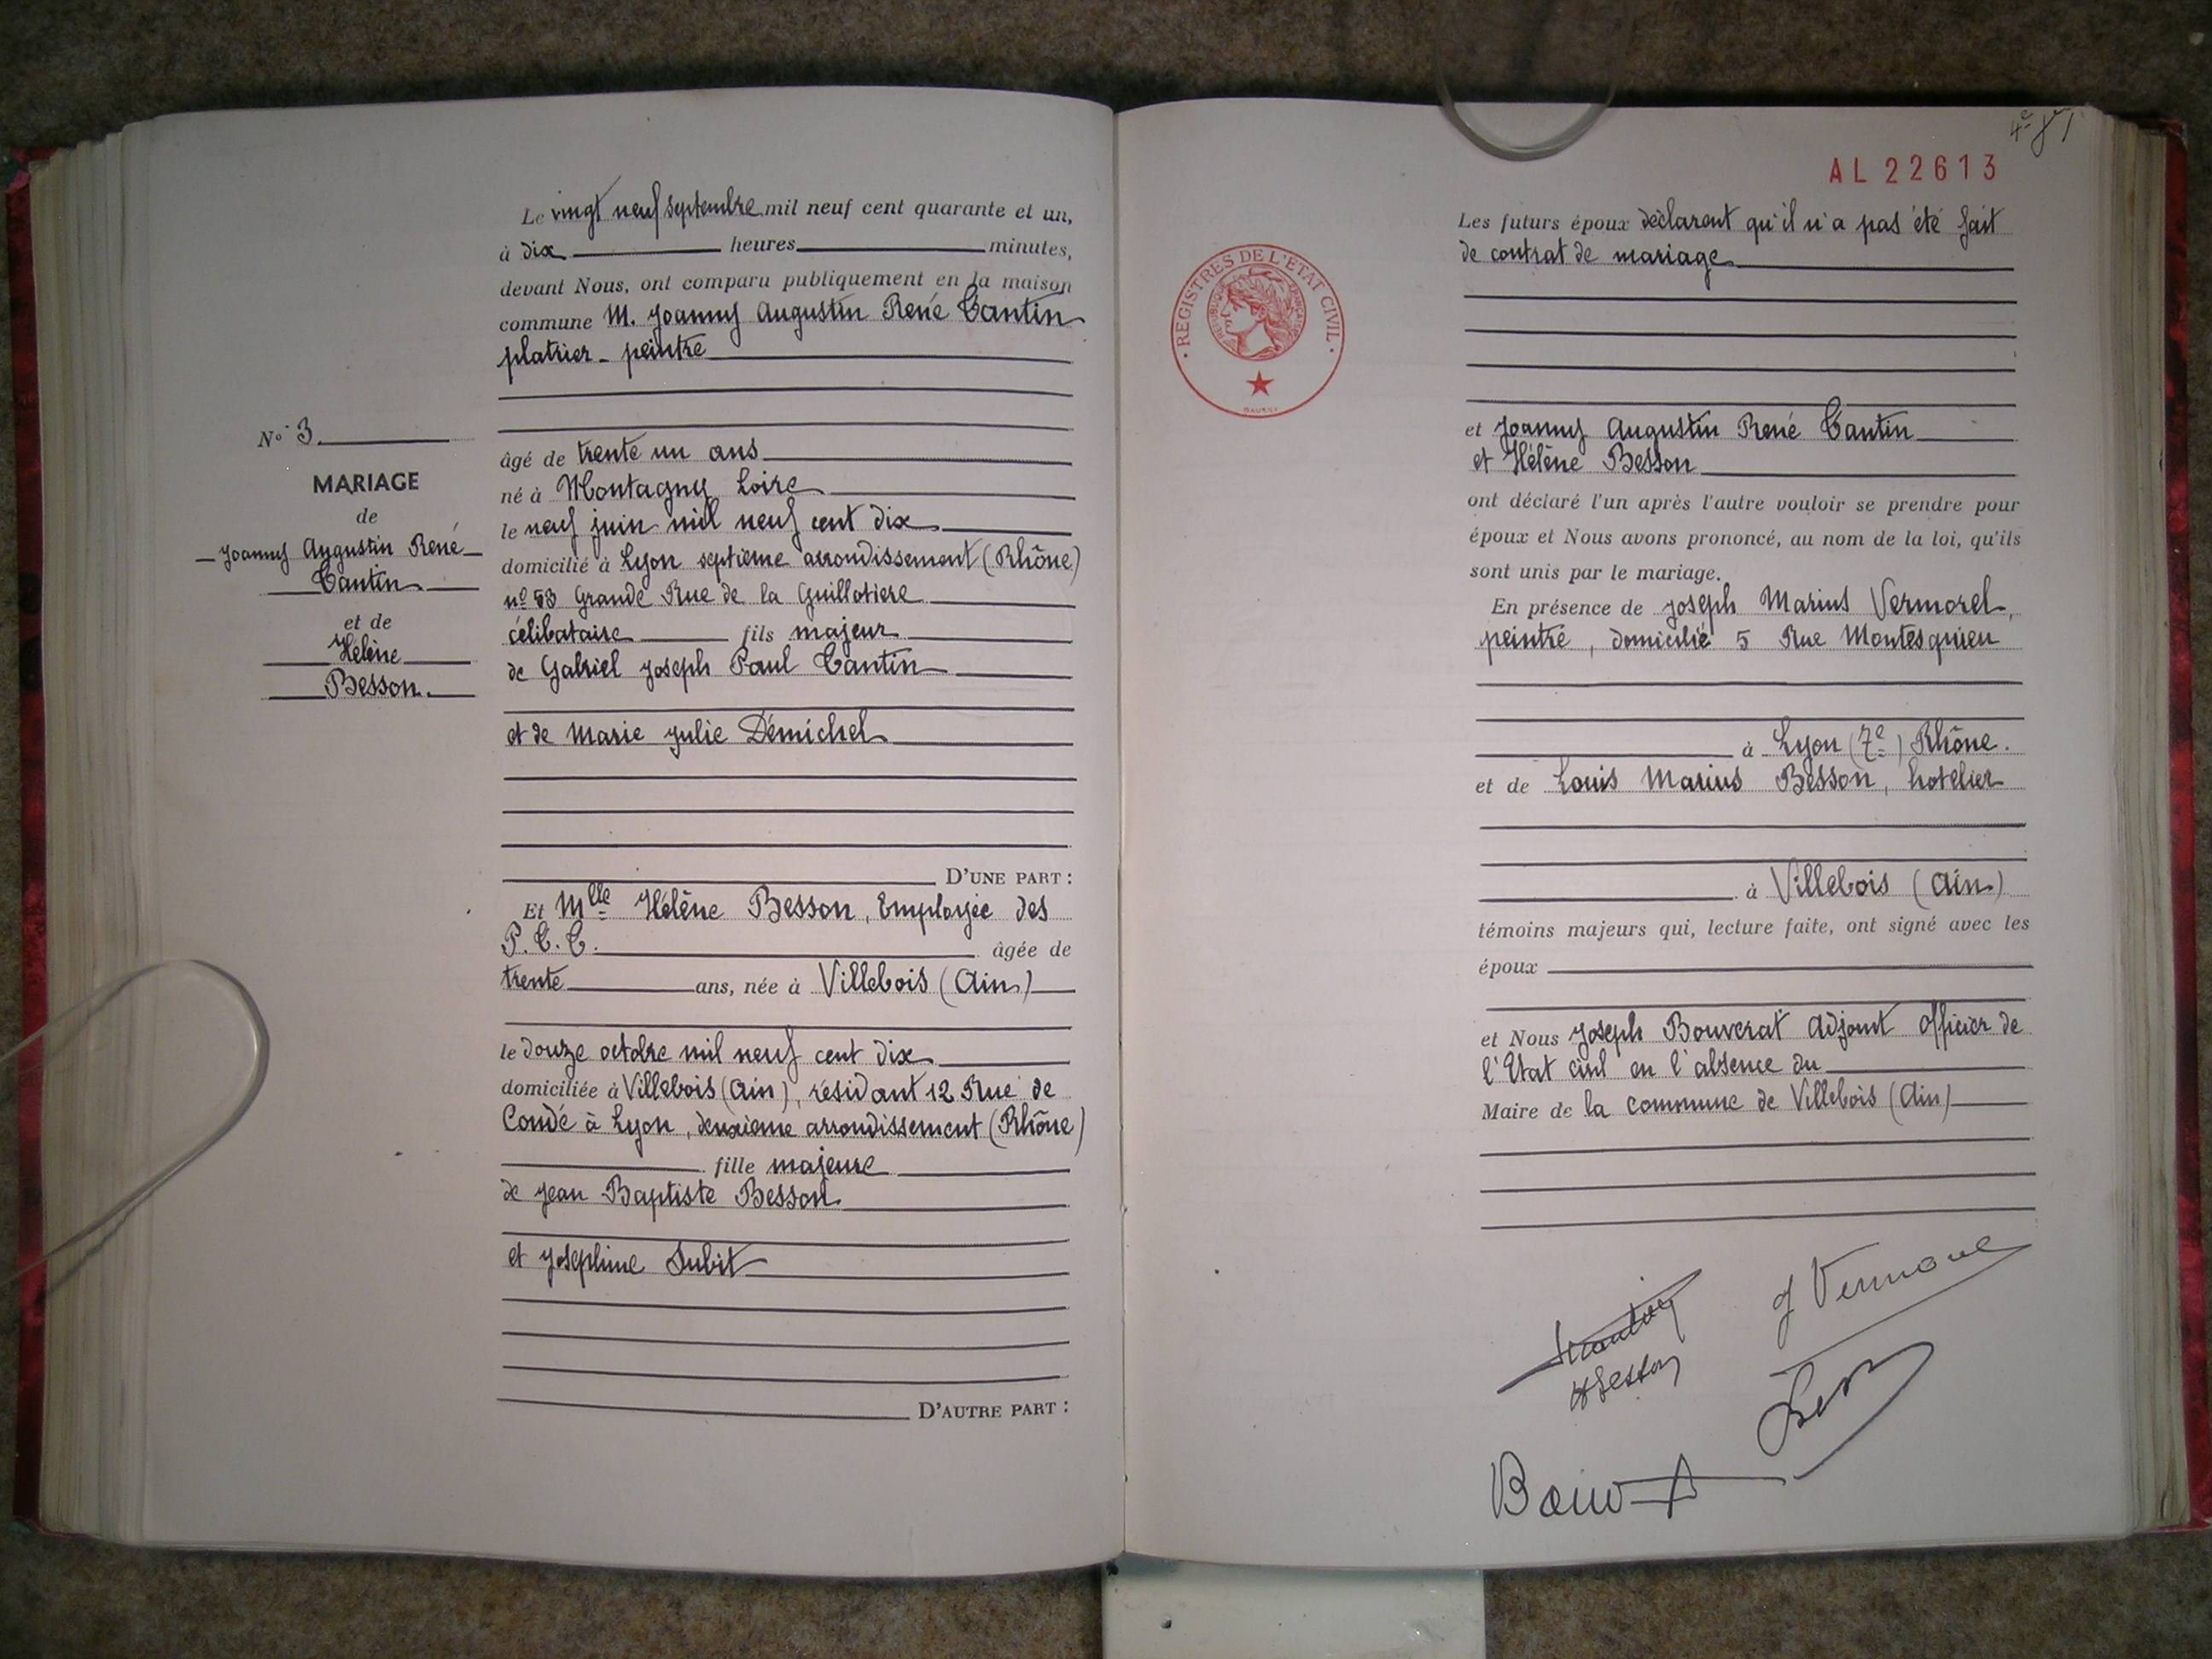 Le vingt neuf septembre mil neuf cent quarante et un,
à dix heures minutes,
devant Nous, ont comparu publiquement en la maison
commune M. Joanny Augustin René Tantin
platrier - peintre
N° 3
MARIAGE
de
Joanny Augustin René
Tantin
et de
Hélène
Besson.
âgé de trente un ans
né à Montagny Loire
le neuf juin mil neuf cent dix
domicilié à Lyon septième arrondissement (Rhône)
nº 53 Grande Rue de la Guillotiere
célibataire fils majeur
de Gabriel Joseph Paul Tantin
et de Marie Julie Démichel
D'UNE PART :
Et Mlle Hélène Besson, Employée des
P.T.T. âgée de
trente ans, née à Villebois (Ain)
le douze octobre mil neuf cent dix
domiciliée à Villebois (Ain), résidant 12 Rue de
Condé à Lyon, deuxième arrondissement (Rhône)
fille majeure
de Jean Baptiste Besson
et Josephine Subit
D'AUTRE PART :
AL 22613
REGISTRES DE L'ÉTAT CIVIL
RÉPUBLIQUE FRANÇAISE
Les futurs époux déclarent qu'il n'a pas été fait
de contrat de mariage
et Joanny Augustin René Tantin
et Hélène Besson
ont déclaré l'un après l'autre vouloir se prendre pour
époux et Nous avons prononcé, au nom de la loi, qu'ils
sont unis par le mariage.
En présence de Joseph Marius Vermorel,
peintre, domicilié 5 Rue Montesquieu
à Lyon (7e) Rhône.
et de Louis Marius Besson, hotelier
à Villebois (Ain)
témoins majeurs qui, lecture faite, ont signé avec les
époux
et Nous Joseph Bouverat Adjoint Officier de
l'Etat civil en l'absence du
Maire de la commune de Villebois (Ain)
HBesson
J Vermorel